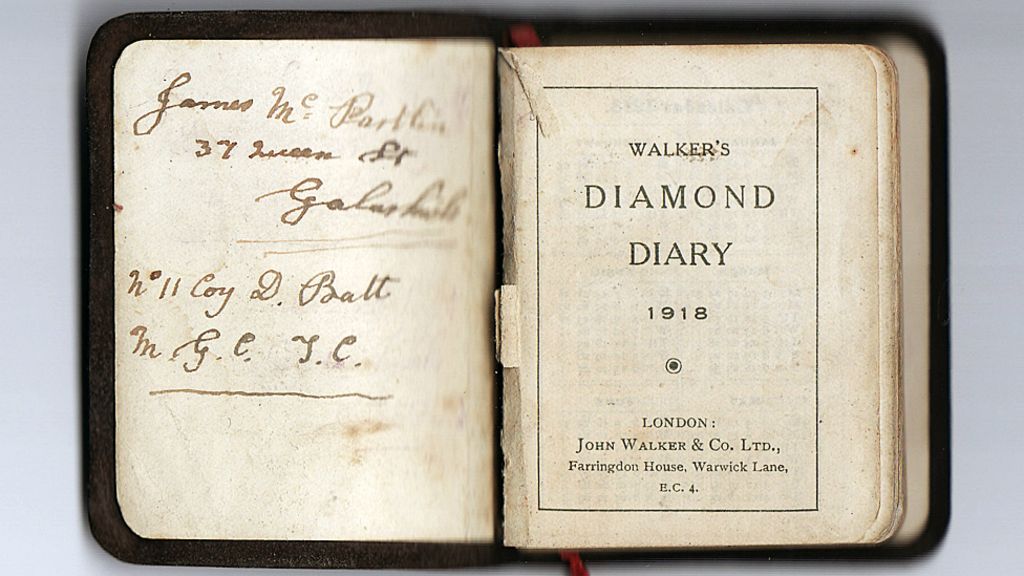 James Mc Partlin
37 Queen St
Galashiels
No 11 Coy D. Batt
M. G. C. T. C.
WALKER'S
DIAMOND
DIARY
1918
LONDON:
JOHN WALKER & CO. LTD.,
Farringdon House, Warwick Lane,
E.C. 4.